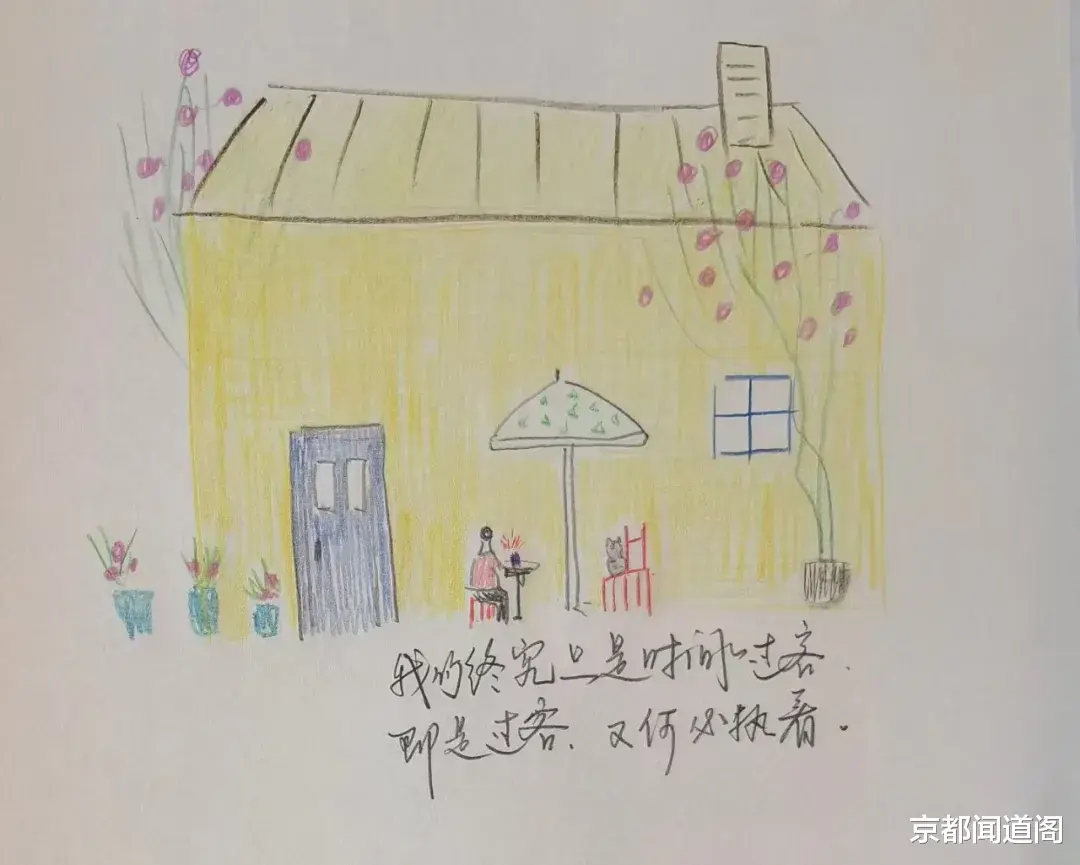 我们终究只是时间的过客.
即是过客、又何必执着.
京都闻道阁